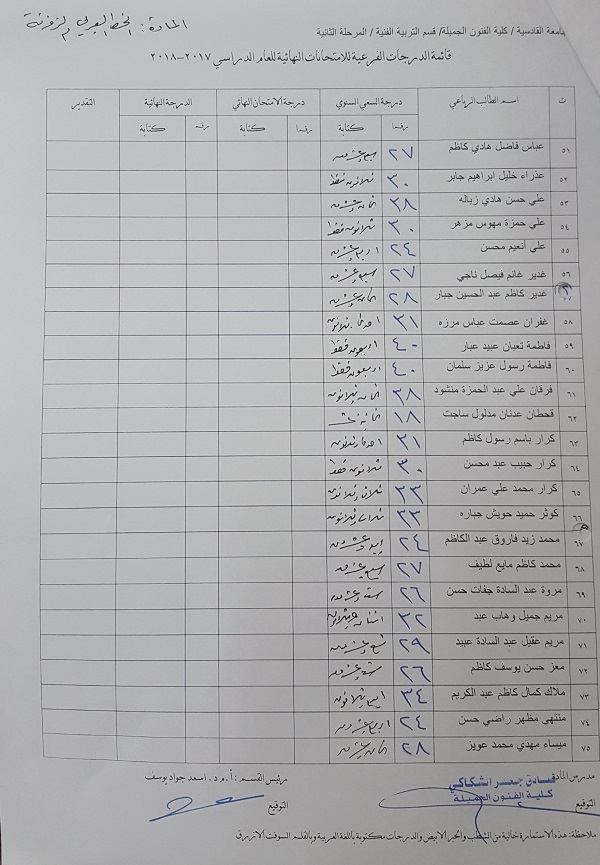 المادة: الخط العربي والزخرفة
جامعة القادسية / كلية الفنون الجميلة/ قسم التربية الفنية / المرحلة الثانية
قائمة الدرجات الفرعية للامتحانات النهائية للعام الدراسي ٢٠١٧-٢٠١٨
ت اسم الطالب الرباعي درجة السعي السنوي درجة الامتحان النهائي الدرجة النهائية التقدير
رقما كتابة رقما كتابة رقما كتابة
٥١ عباس فاضل هادي كاظم ٢٧ سبع وعشرون
٥٢ عذراء خليل ابراهيم جابر ٣٠ ثلاثون فقط
٥٣ علي حسن هادي زباله ٢٨ ثمان وعشرون
٥٤ علي حمزة مهوس مزهر ٣٠ ثلاثون فقط
٥٥ علي أنعيم محسن ٢٤ اربع وعشرون
٥٦ غدير غانم فيصل ناجي ٢٧ سبع وعشرون
غدير كاظم عبد الحسين جبار ٢٨ ثمان وعشرون
٥٨ غفران عصمت عباس مرزه ٣١ احدى وثلاثون
٥٩ فاطمة تعبان عبيد عبار ٤٠ اربعون فقط
٦٠ فاطمة رسول عزيز سلمان ٤٠ اربعون فقط
٦١ فرقان علي عبد الحمزة منشود ٣٨ ثمان وثلاثون
٦٢ قحطان عدنان مدلول ساجت ١٨ ثمانية عشر
٦٣ كرار باسم رسول كاظم ٣١ احدى وثلاثون
٦٤ كرار حبيب عبد محسن ٣٠ ثلاثون فقط
٦٥ كرار محمد علي عمران ٣٣ ثلاث وثلاثون
٦٦ كوثر حميد حويش جباره ٣٣ ثلاث وثلاثون
٦٧ محمد زيد فاروق عبد الكاظم ٢٤ اربع وعشرون
٦٨ محمد كاظم مايع لطيف ٢٧ سبع وعشرون
٦٩ مروة عبد السادة جفات حسن ٢٦ ست وعشرون
٧٠ مريم جميل وهاب عبد ٣٢ اثنان وثلاثون
٧١ مريم عقيل عبد السادة عبيد ٢٩ تسع وعشرون
٧٢ معز حسن يوسف كاظم ٢٦ ست وعشرون
٧٣ ملاك كمال كاظم عبد الكريم ٣٤ اربع وثلاثون
٧٤ منتهى مظهر راضي حسن ٢٤ اربع وعشرون
٧٥ ميساء مهدي محمد عويز ٢٨ ثمان وعشرون
مدرس المادة رئيس القسم : أ.م.د. اسعد جواد يوسف
كلية الفنون الجميلة
التوقيع التوقيع
ملاحظة: هذه الاستمارة خالية من الشطب والحبر الابيض والدرجات مكتوبة باللغة العربية وبالقلم السوفت الازرق